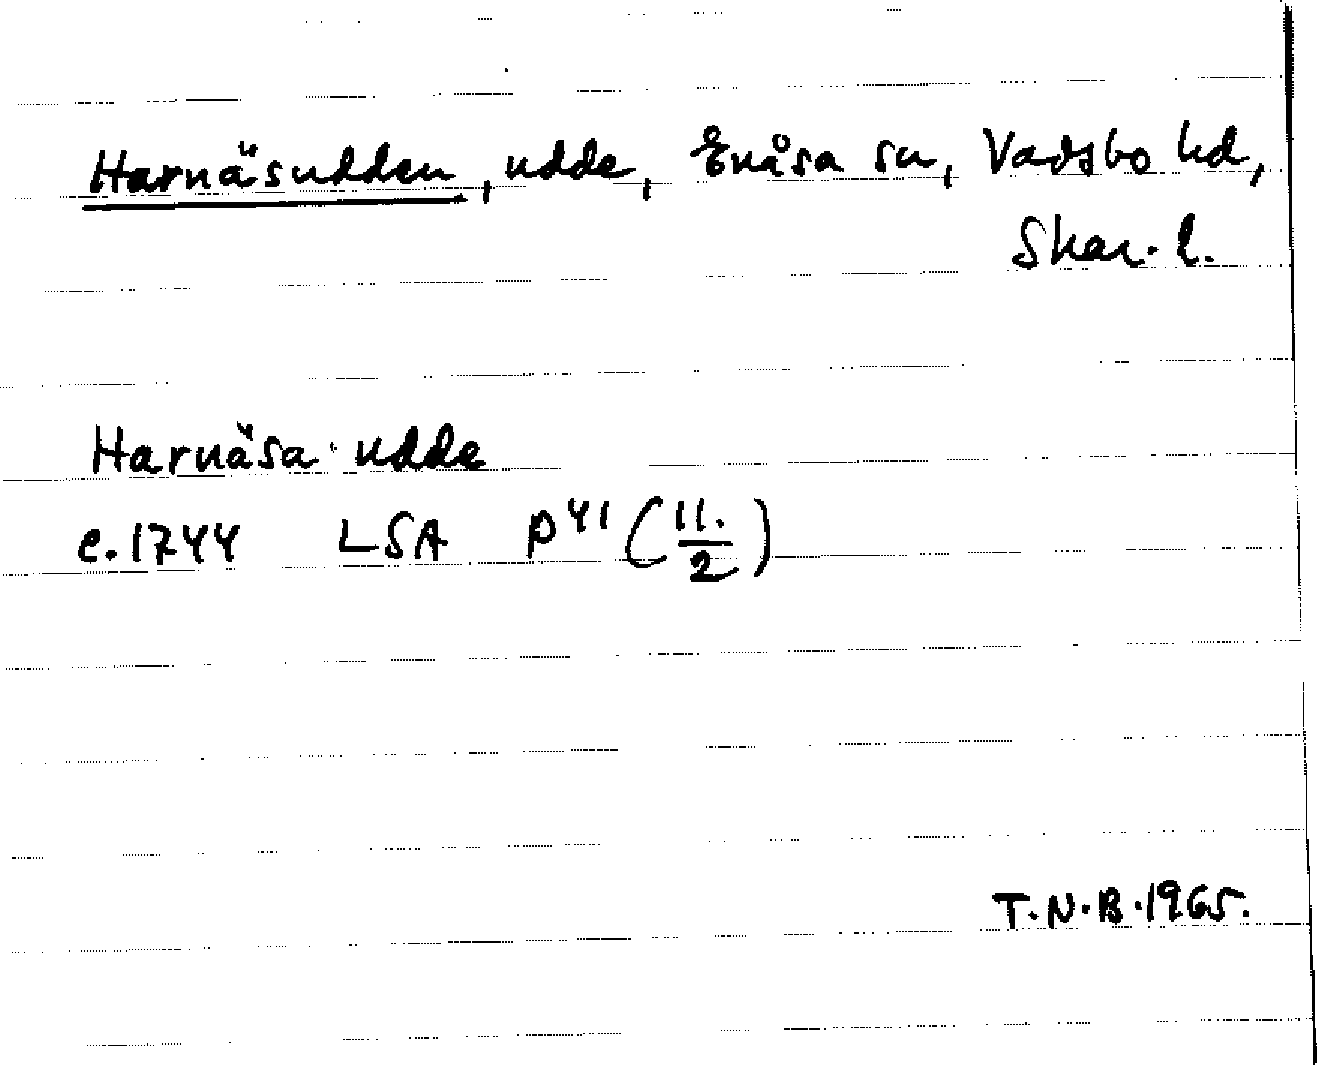 Harnäsudden, udde, Enåsa sn, Vadsbo hd,
Skar. l.
Harnäsa udde
c. 1744 LSA P 41 (11./2)
T.N.B. 1965.